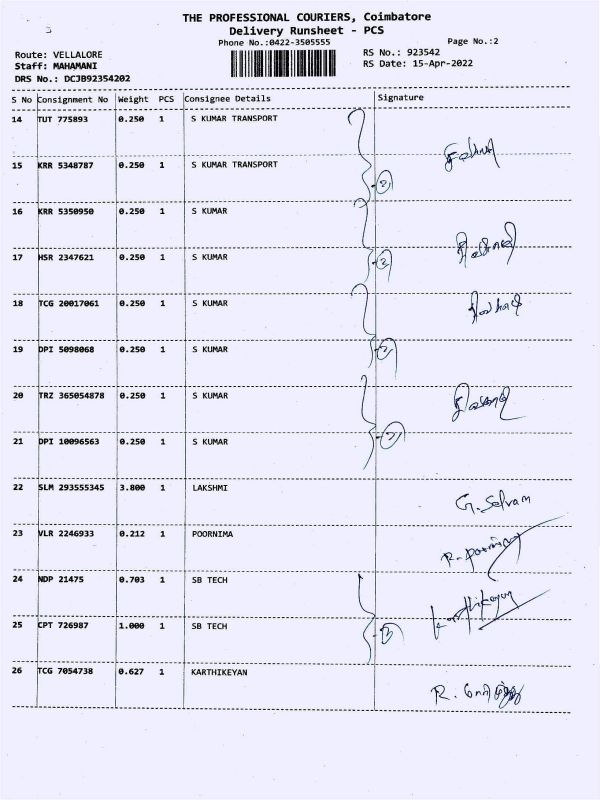 THE PROFESSIONAL COURIERS, Coimbatore
Delivery Runsheet - PCS
Phone No.:0422-3505555
Page No.:2
Route: VELLALORE
RS No.: 923542
Staff: MAHAMANI
RS Date: 15-Apr-2022
DRS No.: DCJB92354202
S No Consignment No Weight PCS Consignee Details Signature
14 TUT 775893 0.250 1 S KUMAR TRANSPORT
15 KRR 5348787 0.250 1 S KUMAR TRANSPORT
16 KRR 5350950 0.250 1 S KUMAR
17 HSR 2347621 0.250 1 S KUMAR
18 TCG 20017061 0.250 1 S KUMAR
19 DPI 5098068 0.250 1 S KUMAR
20 TRZ 365054878 0.250 1 S KUMAR
21 DPI 10096563 0.250 1 S KUMAR
22 SLM 293555345 3.800 1 LAKSHMI
G. Selvam
23 VLR 2246933 0.212 1 POORNIMA
24 NDP 21475 0.703 1 SB TECH
Karthikeyan
25 CPT 726987 1.000 1 SB TECH
26 TCG 7054738 0.627 1 KARTHIKEYAN